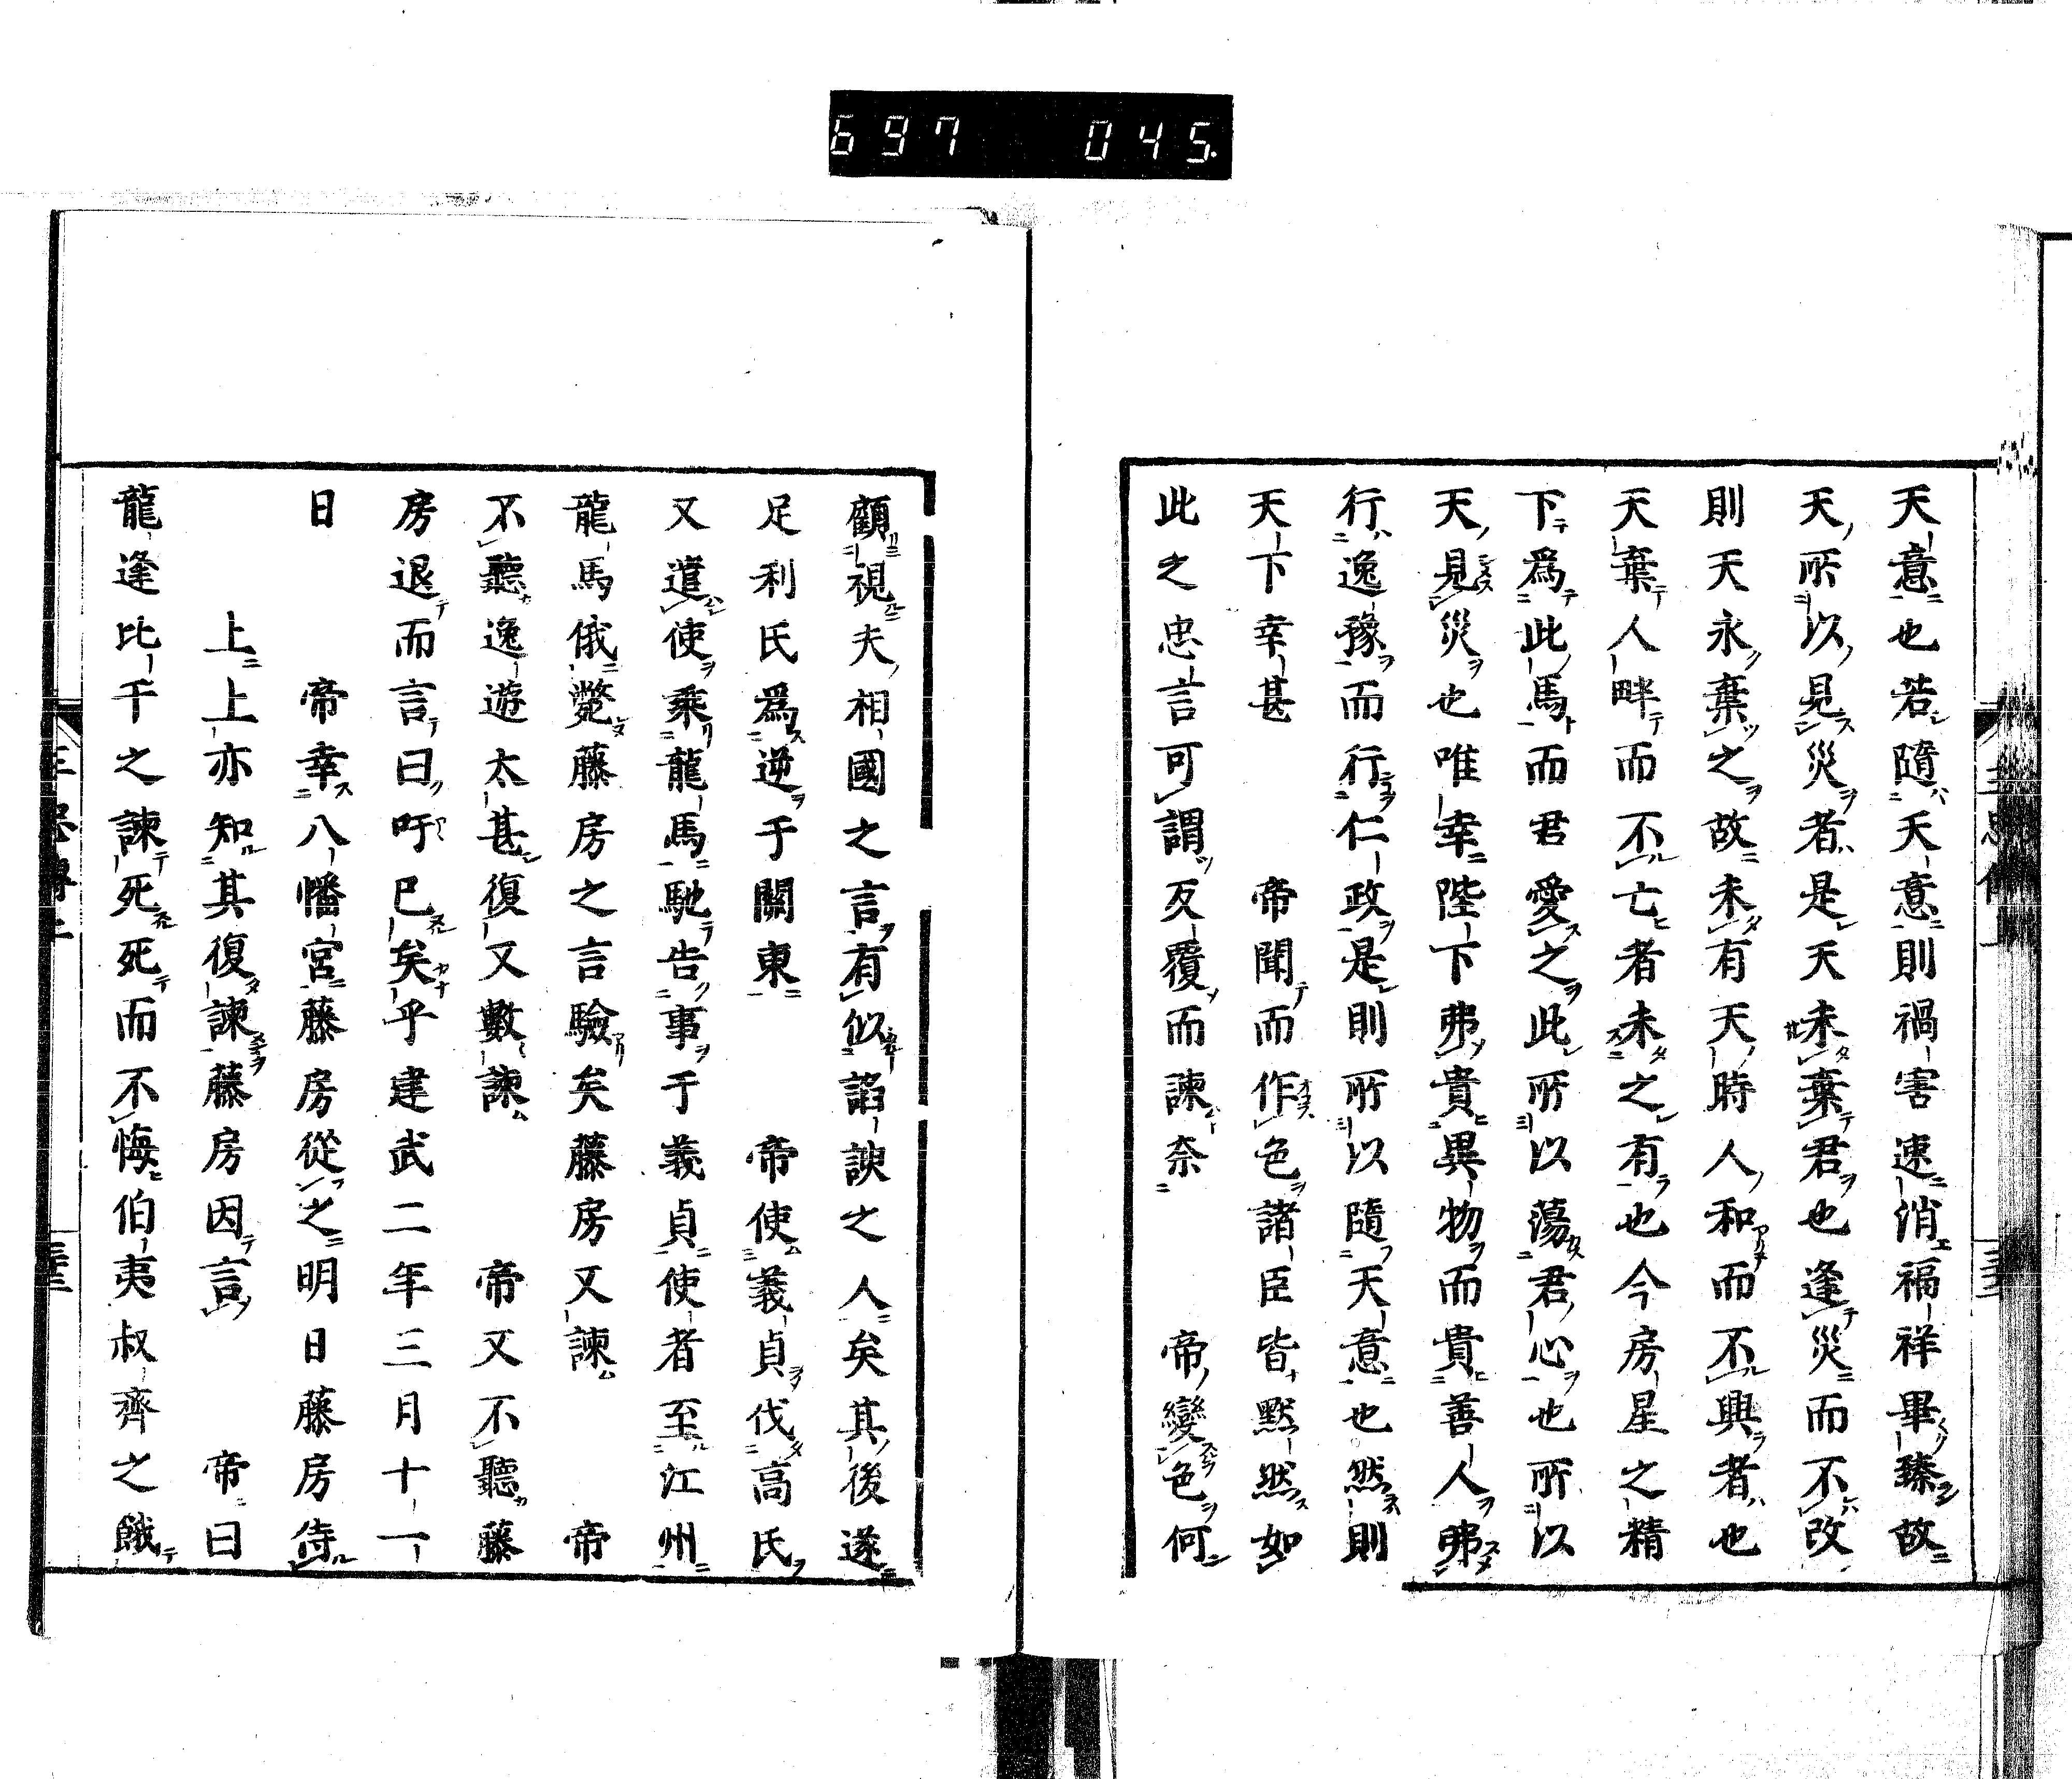 697 045.
天意也若隨天意則禍害速消福祥畢臻故
天所以見災者是天未棄君也逢災而不改
則天永棄之故未有天時人和而不興者也
天棄人畔而不亡者未之有也今房星之精
下爲此馬而君愛之此所以蕩君心也所以
天見災也唯幸陛下弗貴異物而貴善人弗
行逸豫而行仁政是則所以隨天意也然則
天下幸甚 帝聞而作色諸臣皆默然如
此之忠言可謂反覆而諫奈 帝變色何
顧視夫相國之言有似諂諛之人矣其後遂
足利氏爲逆于關東 帝使義貞伐高氏
又遣使乘龍馬馳告事于義貞使者至江州
龍馬俄斃藤房之言驗矣藤房又諫 帝
不聽逸遊太甚復又數諫 帝又不聽藤
房退而言曰吁已矣乎建武二年三月十一
日 帝幸八幡宮藤房從之明日藤房侍
上上亦知其復諫藤房因言 帝曰
龍逢比干之諫死死而不悔伯夷叔齊之餓